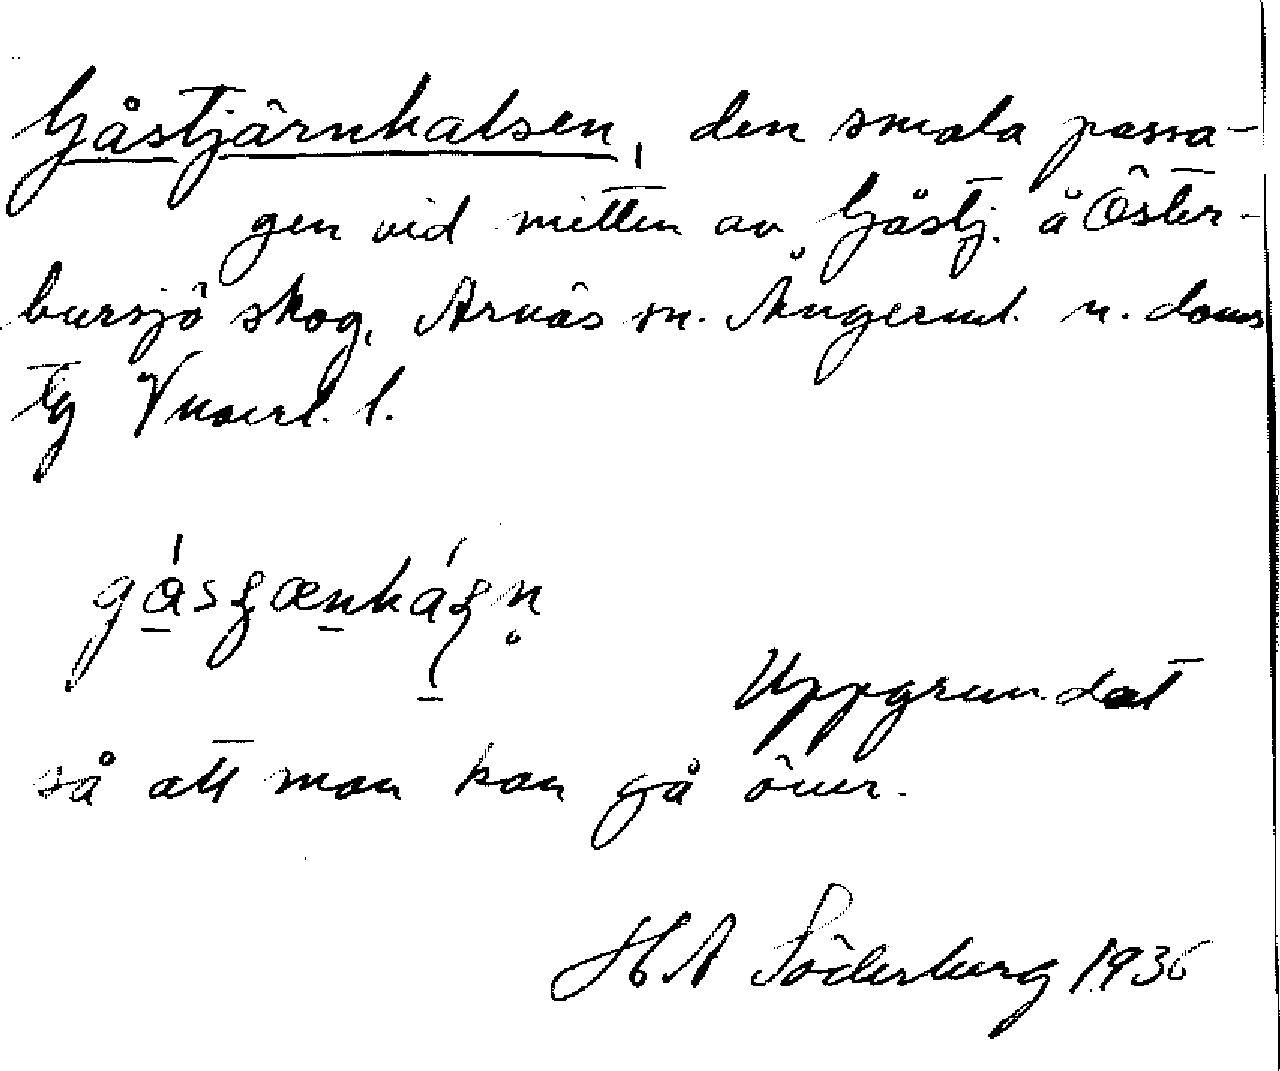 Gåstjärnhalsen, den smala passa-
gen vid mitten av Gåstj. å Öster-
bursjö skog, Arnäs sn. Ångerml. n. doms
tg Vnorrl. l.
Uppgrundat
så att man kan gå över.
H A Söderberg 1936